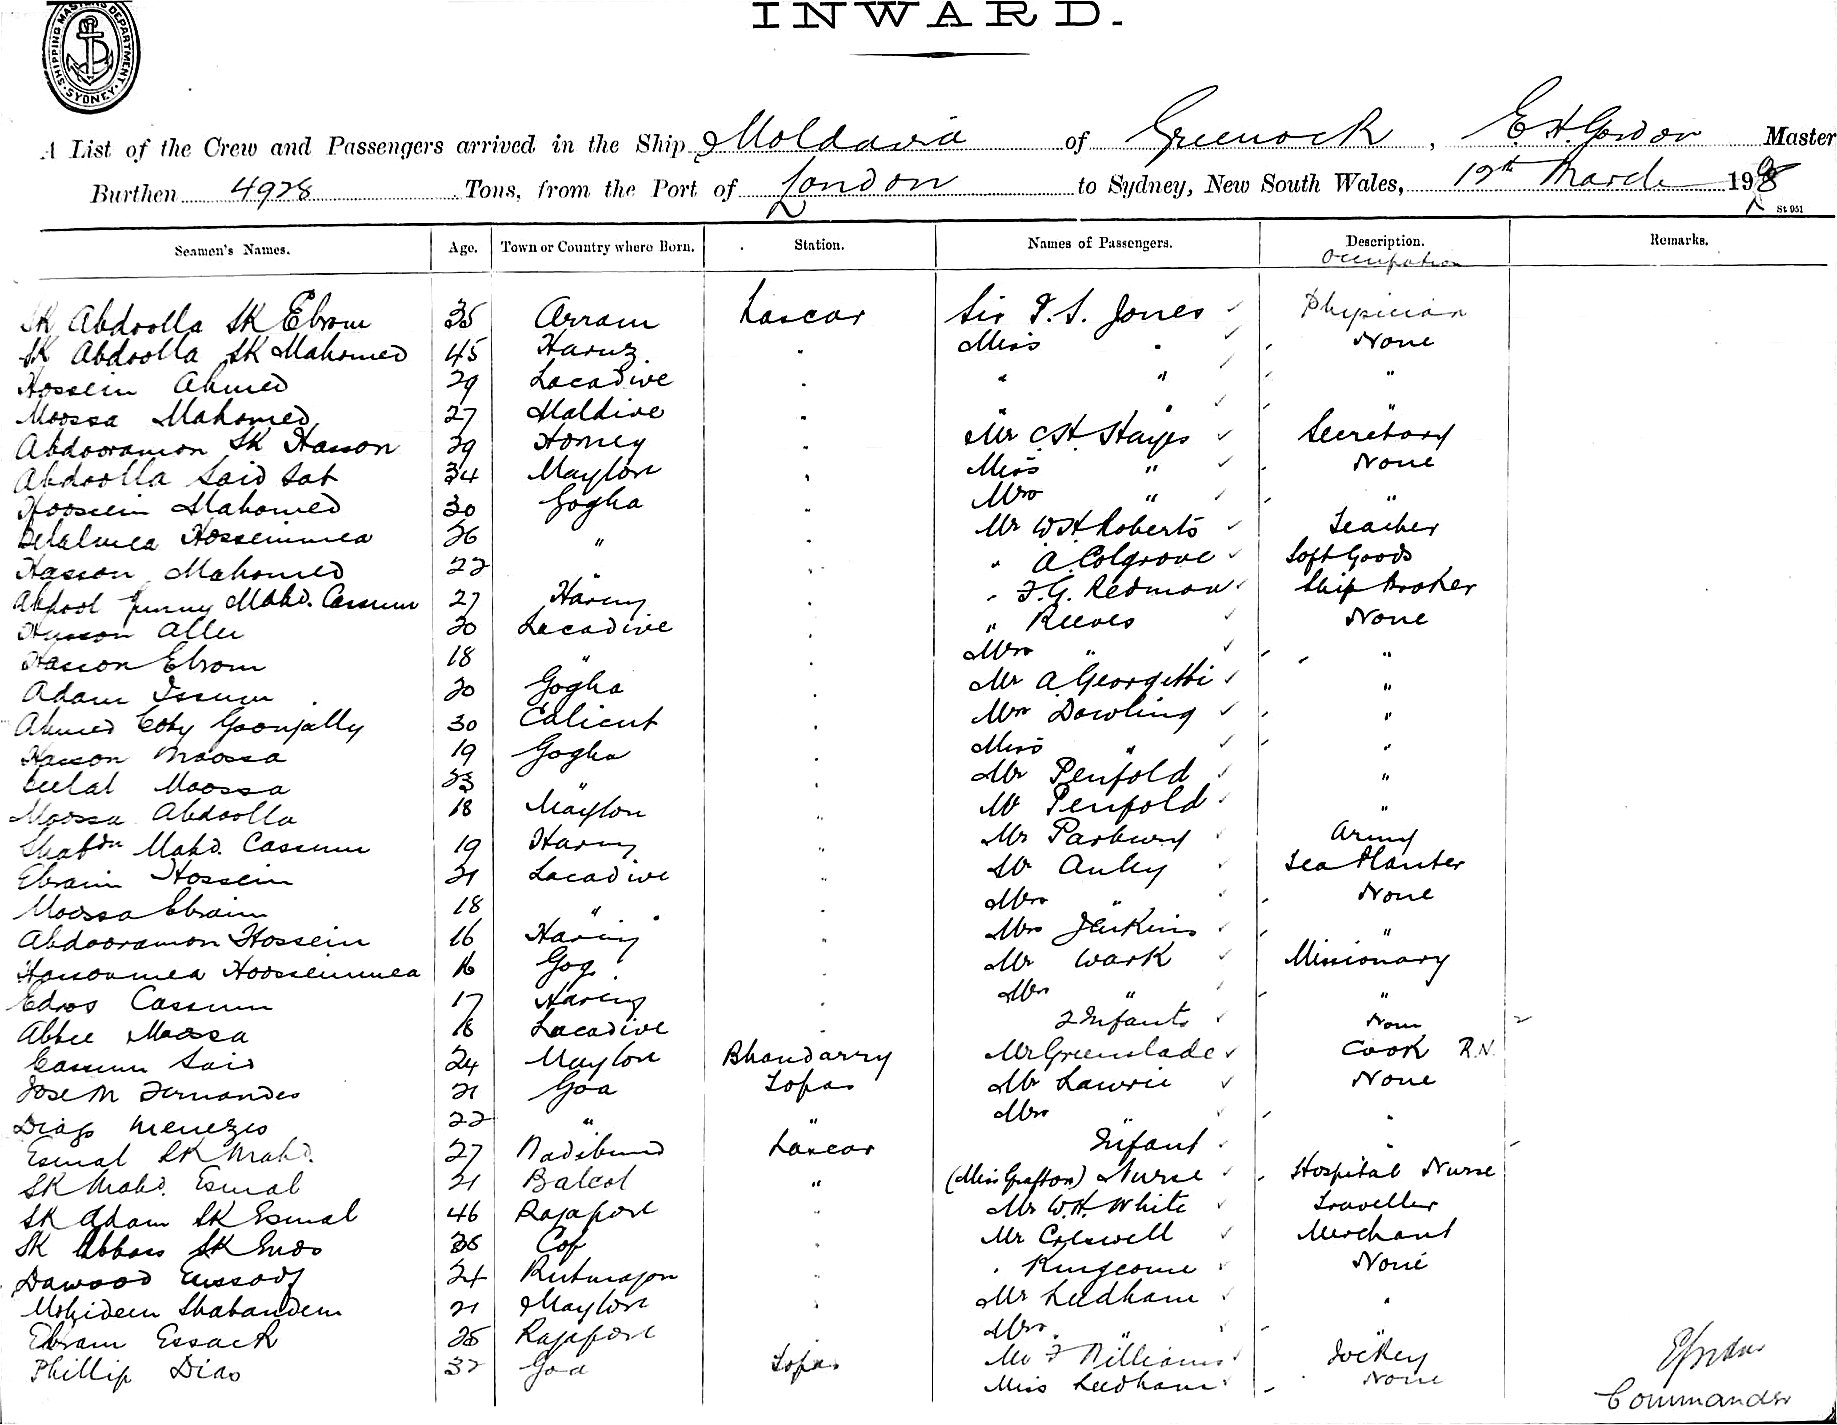 INWARD.
SHIPPING MASTERS DEPARTMENT. SYDNEY.
A List of the Crew and Passengers arrived in the Ship Moldavia of Greenock, E. H. Gordon Master
Burthen 4928 Tons, from the Port of London to Sydney, New South Wales, 12th March 190
St 951
Seamen's Names. Age. Town or Country where Born. Station. Names of Passengers. Description. Remarks.
Occupation
SK Abdoolla SK Ebram 35 Arram Lascar Sir P. S. Jones Physician
SK Abdoolla SK Mahomed 45 " Miss " None
Hossein Ahmed 29 Lacadive " " " "
Moossa Mahomed 27 Maldive " " " "
Abdooramon SK Hasson 29 " Mr C H Hayes Secretary
Abdoolla Said 34 Maylon " Miss " None
Hoossein Mahomed 30 Gogha " Mrs " "
Hosseinmea 26 " " Mr W H Roberts Teacher
Hasson Mahomed 22 " " " A. Colgrove Soft Goods
Abdool Mahd. Cassum 27 " " F. G. Redman Ship Broker
Allee 20 Lacadive " " Reeves None
Hasson Ebram 18 " " Mrs " "
Adam Issum 20 Gogha " Mr A Georgetti "
Ahmed 30 Calicut " Mrs Dowling "
Hasson Moossa 19 Gogha " Miss " "
Moossa 23 " " Mr Penfold "
Moossa Abdoolla 18 Maylon " Mr Penfold "
Mahd. Cassum 19 " Mr Army
Ebraim Hossein 21 Lacadive " Mr Tea Planter
Moossa Ebraim 18 " " Mrs " None
Abdooramon Hossein 16 " Mrs Jenkins "
Hassonmea Hoosseinmea 16 Gog. " Mr Wark Missionary
Edros Cassum 17 " Mrs " "
Abbee Moossa 18 Lacadive " 2 Infants None
Cassum Said 24 Maylon Bhandarry Mr Greenslade Cook R.N.
Jose M Fernandes 21 Goa Topas Mr Lawrie None
Diago Menezes 22 " " Mrs " "
Esmal SK Mahd. 27 Lascar Infant "
SK Mahd. Esmal 21 " (Miss Grafton) Nurse Hospital Nurse
SK Adam SK Esmal 46 Rajapore " Mr W. H. White Traveller
SK Abbas SK " Mr Creswell Merchant
Dawood " " Kingcome None
Mohideen Shabandeen 21 Maylon " Mr Leedham "
Ebram Essack Rajapore Mrs. " "
Phillip Dias 32 Goa Topas Mr F Williams Jockey
Miss Leedham None
Commander